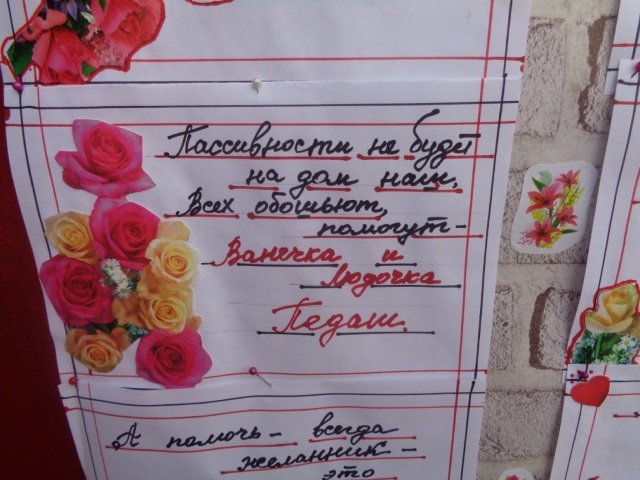 Пассивности не будет
на дом наш,
Всех обошьют,
помогут -
Ванечка и
Людочка
Педаш.
А помочь - всегда
желанник -
это